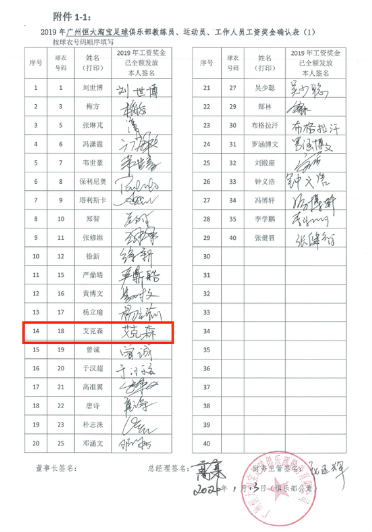 附件 1-1:
2019 年广州恒大淘宝足球俱乐部教练员、运动员、工作人员工资奖金确认表（1）
按球衣号码顺序填写
序号 球衣号码 姓名（打印） 2019 年工资奖金已全额发放本人签名 序号 球衣号码 姓名（打印） 2019 年工资奖金已全额发放本人签名
1 1 刘世博 刘世博 21 27 吴少聪 吴少聪
2 3 梅方 梅方 22 29 郜林
3 5 张琳芃 23 30 布格拉汗 布格拉汗
4 6 冯潇霆 24 31 罗涵博文 罗涵博文
5 7 韦世豪 25 32 刘殿座
6 8 保利尼奥 26 33 钟义浩 钟义浩
7 9 塔利斯卡 27 34 冯博轩
8 10 郑智 28 35 李学鹏
9 11 张修维 29 40 张健智 张健智
10 12 徐新 徐新 30
11 15 严鼎皓 严鼎皓 31
12 16 黄博文 32
13 17 杨立瑜 33
14 18 艾克森 艾克森 34
15 19 曾诚 曾诚 35
16 20 于汉超 36
17 21 高准翼 37
18 22 唐诗 38
19 23 朴志洙 39
20 25 邓涵文 40
董事长签名： 总经理签名： 财务主管签名：
1月3日（俱乐部公章）